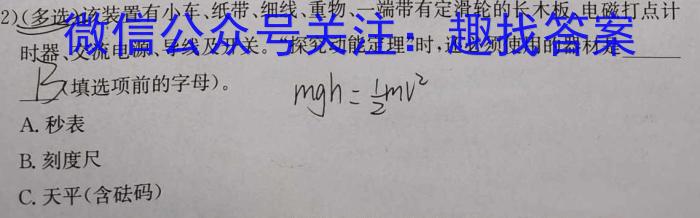 2)(多选)该装置有小车、纸带、细线、重物、一端带有定滑轮的长木板、电磁打点计
微信公众号关注：趣找答案
时器、交流电源、导线及开关。“探究动能定理”时,还必须使用的器材是
B(填选项前的字母)。
mgh=½mv²
A. 秒表
B. 刻度尺
C. 天平(含砝码)